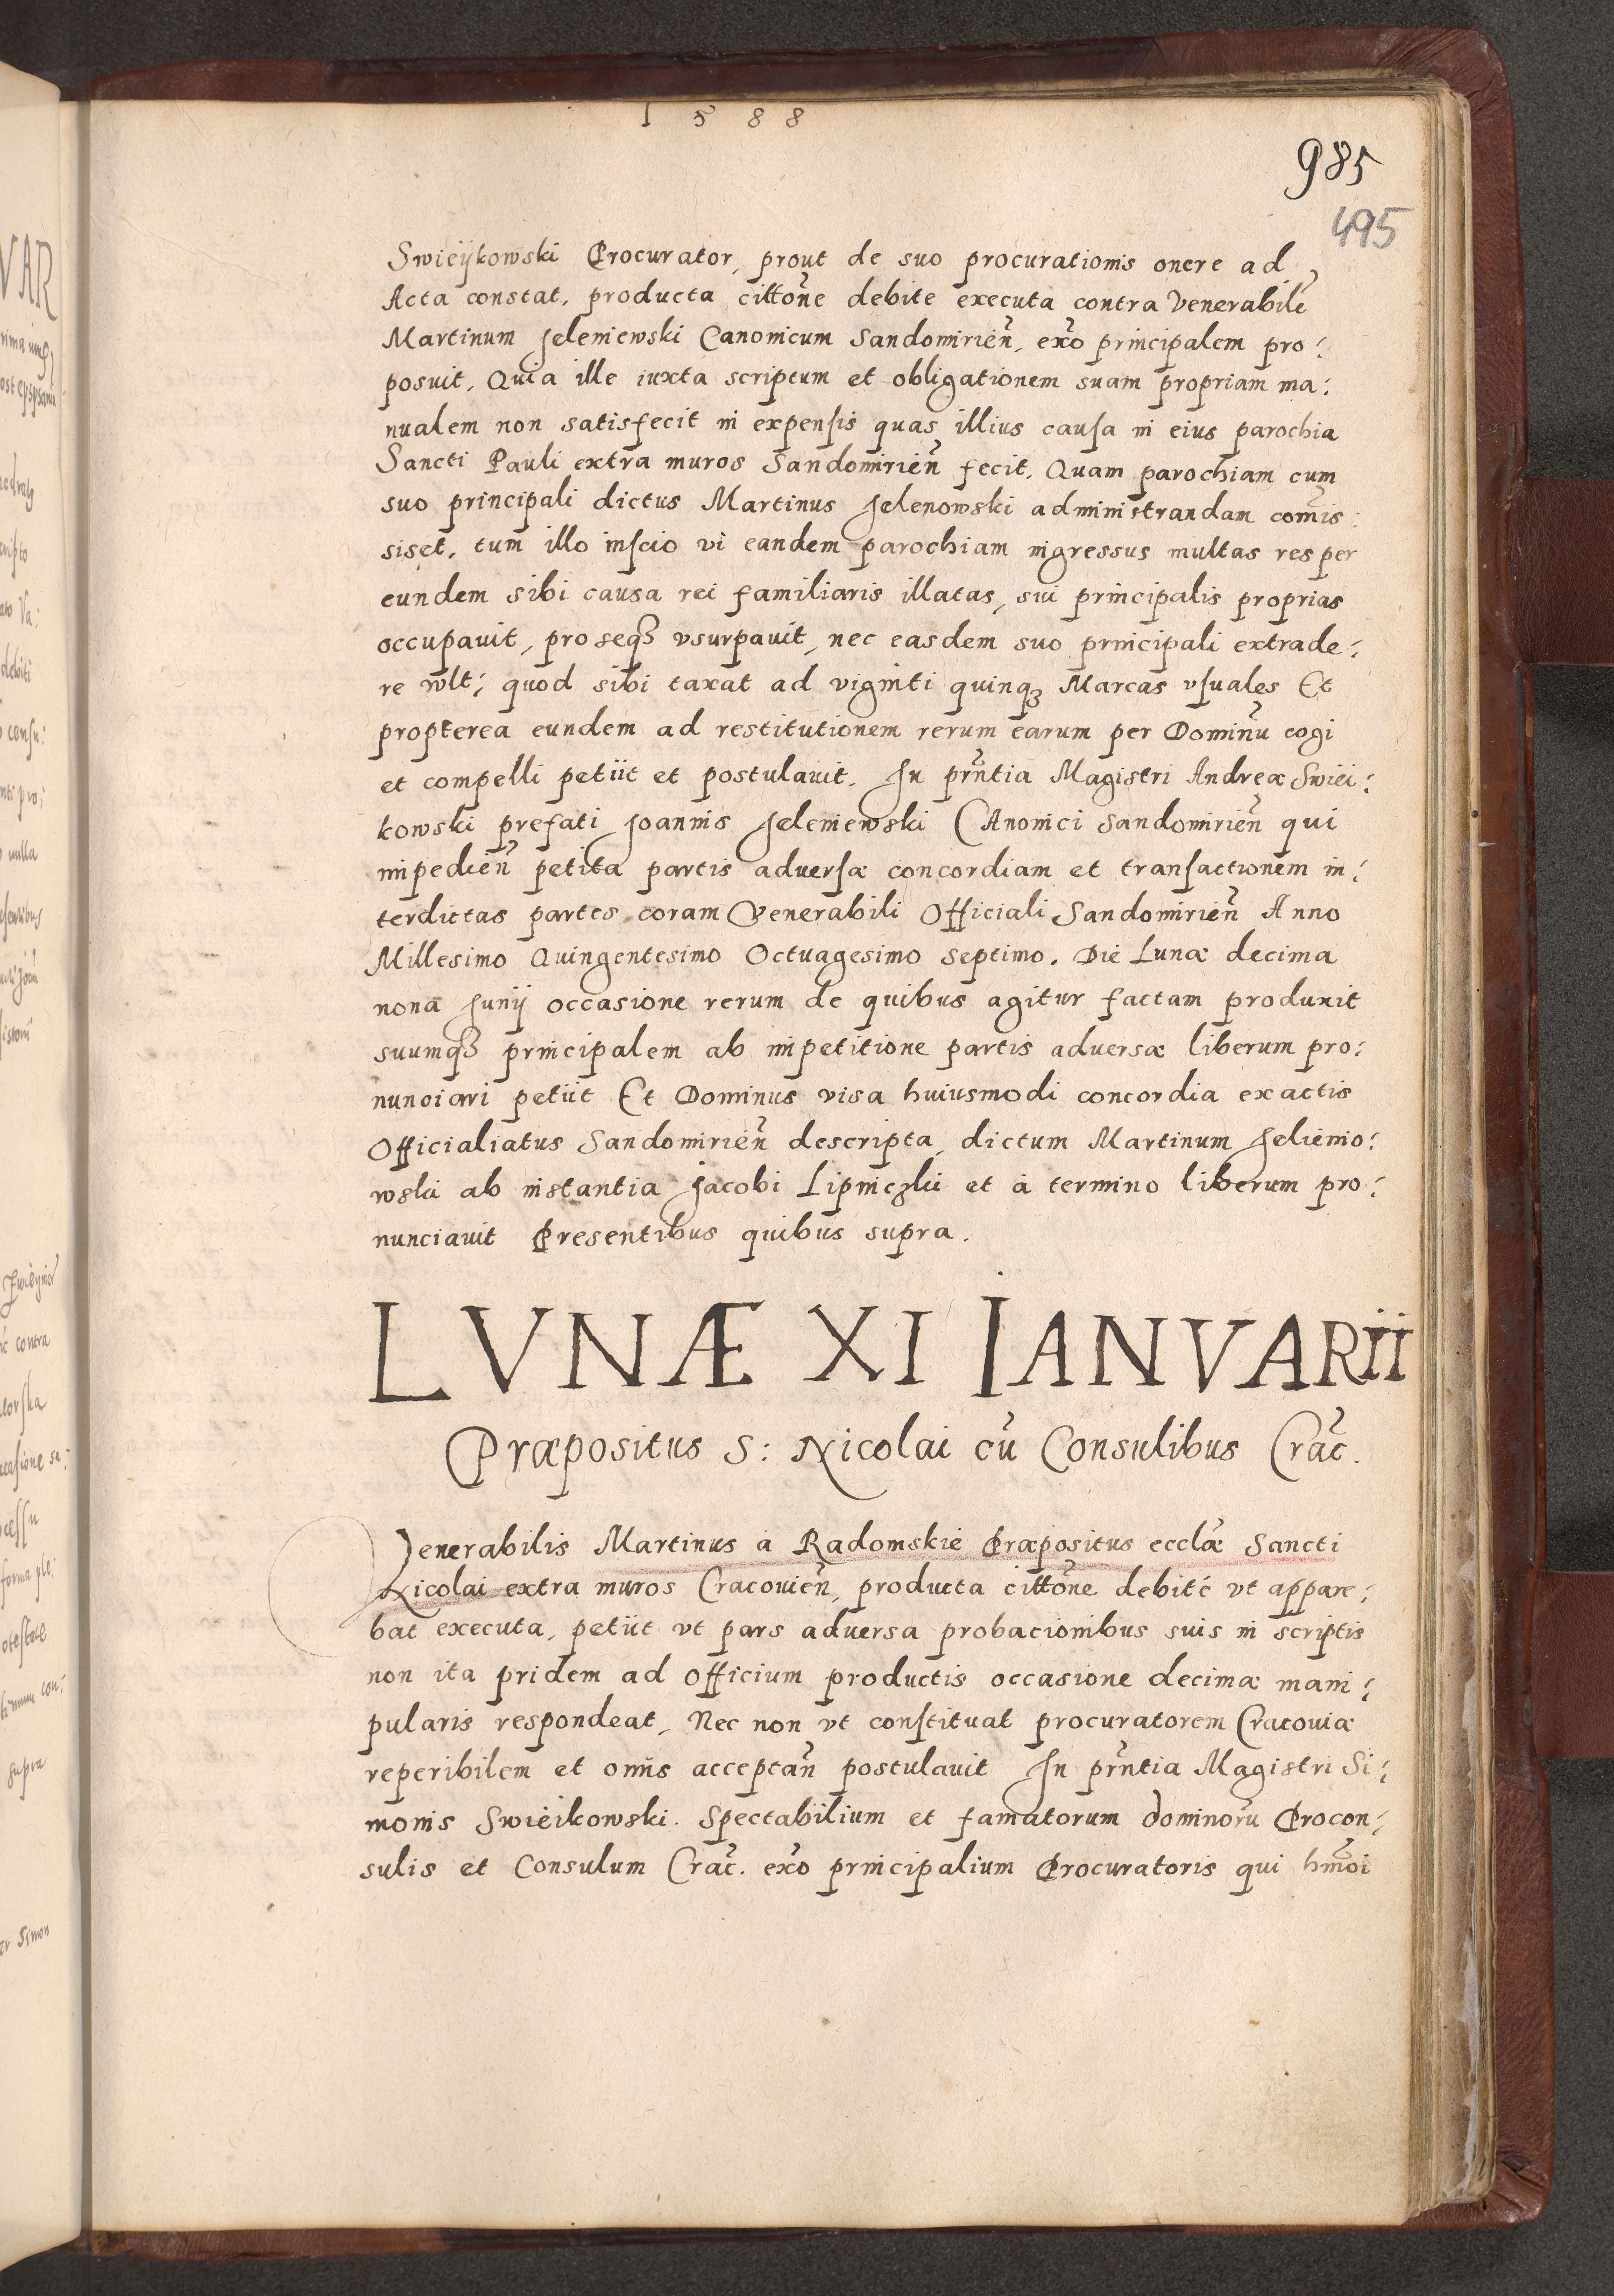 1588
985
495
Swieijkowski Procurator, prout de suo procurationis onere ad
Acta constat, producta cittõne debite executa contra Venerabilẽ
Martinum Jeleniewski Canonicum Sandomirieñ, exõ principalem pro:
posuit, Quia ille iuxta scriptum et obligationem suam propriam ma:
nualem non satisfecit in expensis quas illius causa in eius parochia
Sancti Pauli extra muros Sandomirieñ fecit, Quam parochiam cum
suo principali dictus Martinus Jelenowski administrandam comis:
siset, tum illo inscio vi eandem parochiam ingressus multas res per
eundem sibi causa rei familiaris illatas, sui principalis proprias
occupauit, pro seqꝫ vsurpauit, nec easdem suo principali extrade:
re wlt: quod sibi taxat ad viginti quinqꝫ Marcas vsuales Et
propterea eundem ad restitutionem rerum earum per Dominũ cogi
et compelli petiit et postulauit. In prñtia Magistri Andreæ Swiei:
kowski prefati Joannis Jeleniewski Canonici Sandomirieñ qui
impedieñ petita partis aduersæ concordiam et transactionem in:
ter dictas partes coram Venerabili Officiali Sandomirieñ Anno
Millesimo Quingentesimo Octuagesimo septimo. Die Lunæ decima
nona Junij occasione rerum de quibus agitur factam produxit
suumqꝫ principalem ab impetitione partis aduersæ liberum pro:
nunciari petiit Et Dominus visa huiusmodi concordia ex actis
Officialiatus Sandomirieñ descripta, dictum Martinum Jelienio:
wski ab instantia Jacobi Lipniczkii et à termino liberum pro:
nunciauit Presentibus quibus supra.
LVNÆ XI IANVARii
Præpositus S: Nicolai cũ Consulibus Crac̃.
Venerabilis Martinus à Radomskie Præpositus ecclæ̃ Sancti
Nicolai extra muros Cracouieñ, producta cittõne debitè vt appare:
bat executa, petiit vt pars aduersa probacionibus suis in scriptis
non ita pridem ad officium productis occasione decimæ mani:
pularis respondeat, Nec non vt constituat procuratorem Cracouiæ
reperibilem et omĩs acceptañ postulauit In prñtia Magistri Si:
monis Swieikowski. Spectabilium et famatorum dominorũ Procon:
sulis et Consulum Crac̃. exõ principalium Procuratoris qui hmõi